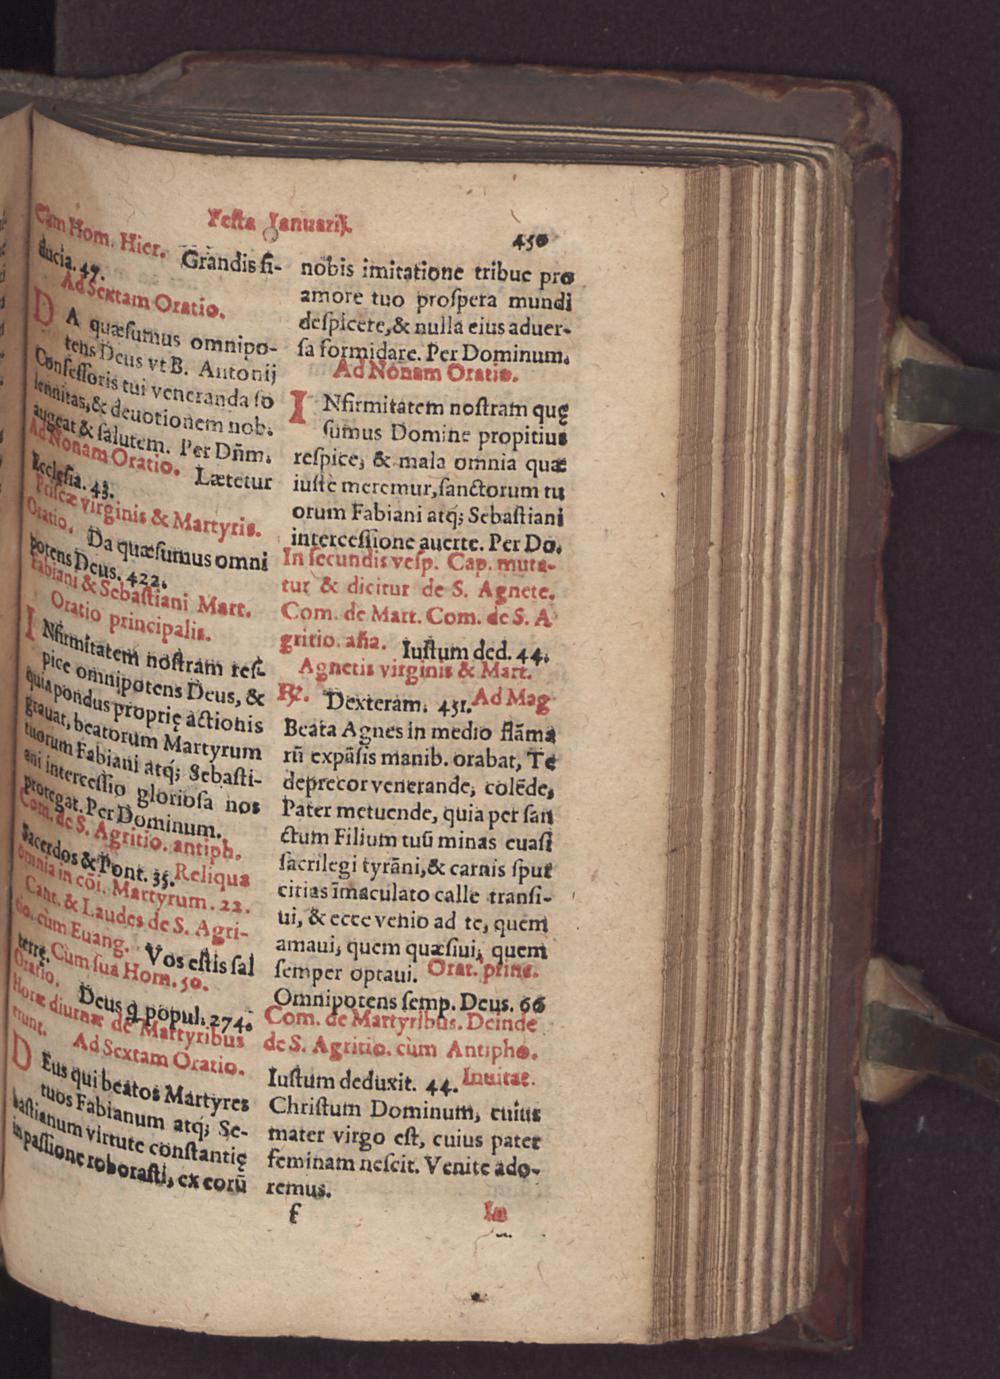 Festa Januarij.
450
Cum Hom. Hier. Grandis fi-
ducia. 47.
Ad Sextam Oratio.
DA quæsumus omnipo-
tens Deus vt B. Antonij
Confessoris tui veneranda so
lennitas, & deuotionem nob.
augeat & salutem. Per Dñm.
Ad Nonam Oratio. Lætetur
Ecclesia. 43.
Priscæ virginis & Martyris.
Oratio. Da quæsumus omni
potens Deus. 422.
Fabiani & Sebastiani Mart.
Oratio principalis.
INfirmitatem nostram res-
pice omnipotens Deus, &
quia pondus proprię actionis
grauat, beatorum Martyrum
tuorum Fabiani atq; Sebasti-
ani intercessio gloriosa nos
protegat. Per Dominum.
Com. de S. Agritio. antiph.
Sacerdos & Pont. 35. Reliqua
omnia in cōi. Martyrum. 22.
Cant. & Laudes de S. Agri-
tio. cùm Euang. Vos estis sal
terrę. Cùm sua Hom. 50.
Oratio. Deus q popul. 274.
Horæ diurnæ de Martyribus
erunt. Ad Sextam Oratio.
DEus qui beatos Martyres
tuos Fabianum atq; Se-
bastianum virtute constantię
in passione roborasti, ex eorū
f
nobis imitatione tribue pro
amore tuo prospera mundi
despicere, & nulla eius aduer-
sa formidare. Per Dominum.
Ad Nonam Oratio.
INfirmitatem nostram quę
sumus Domine propitius
respice, & mala omnia quæ
iuste meremur, sanctorum tu
orum Fabiani atq; Sebastiani
intercessione auerte. Per Do.
In secundis vesp. Cap. muta-
tur & dicitur de S. Agnete.
Com. de Mart. Com. de S. A
gritio. aña. Iustum ded. 44.
Agnetis virginis & Mart.
℞. Dexteram. 451. Ad Mag
Beata Agnes in medio flāma
rū expāsis manib. orabat, Te
deprecor venerande, colēde,
Pater metuende, quia per san
ctum Filium tuū minas euasi
sacrilegi tyrāni, & carnis spur
citias īmaculato calle transi-
ui, & ecce venio ad te, quem
amaui, quem quæsiui, quem
semper optaui. Orat. princ.
Omnipotens semp. Deus. 66
Com. de Martyribus. Deinde
de S. Agritio. cùm Antipho.
Iustum deduxit. 44. Inuitat.
Christum Dominum, cuius
mater virgo est, cuius pater
feminam nescit. Venite ado-
remus.
In